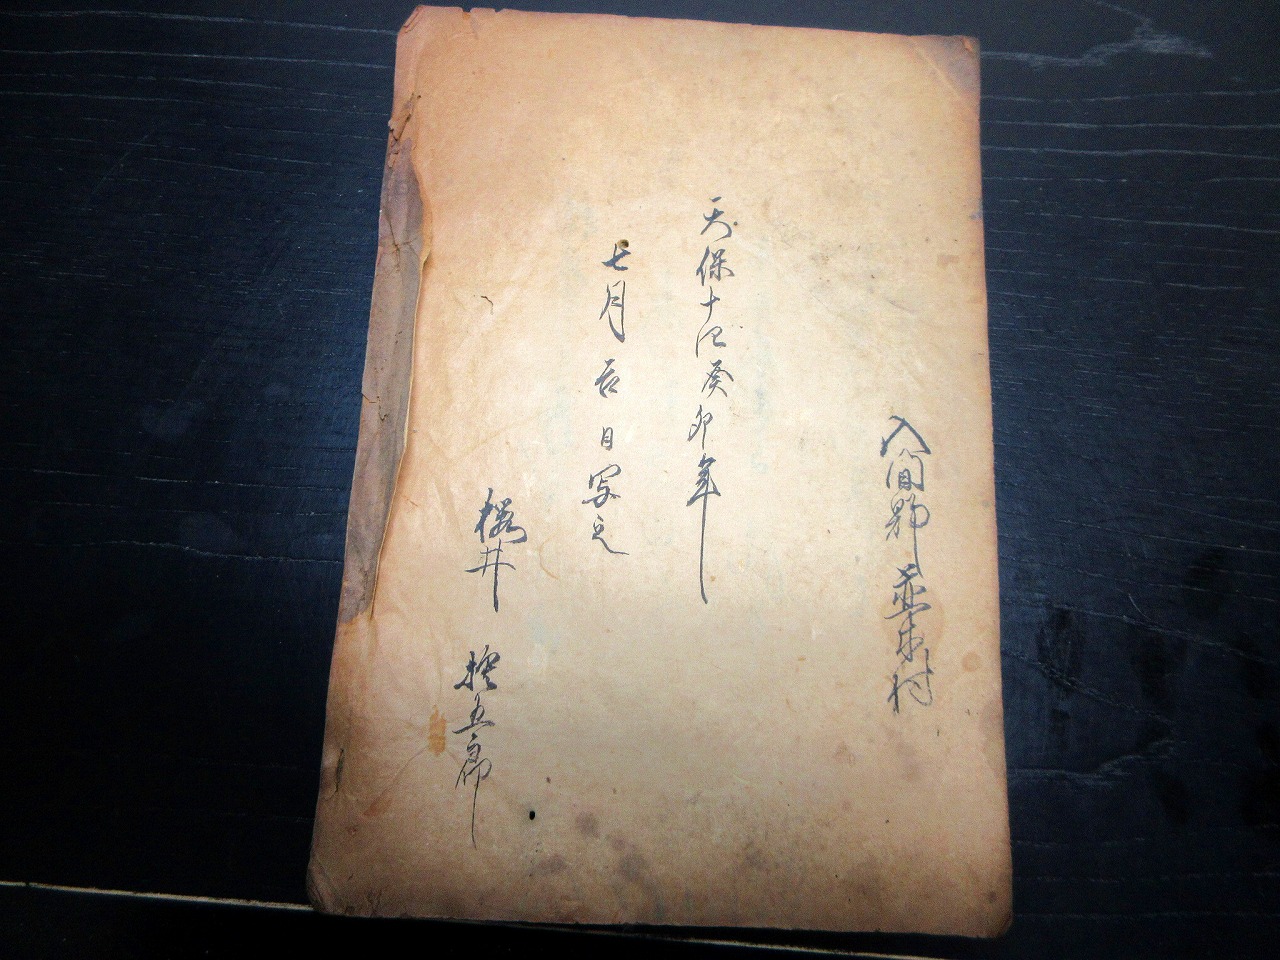 入間郡並木村
天保十四癸卯年
七月吉日写之
桜井 捨五郎